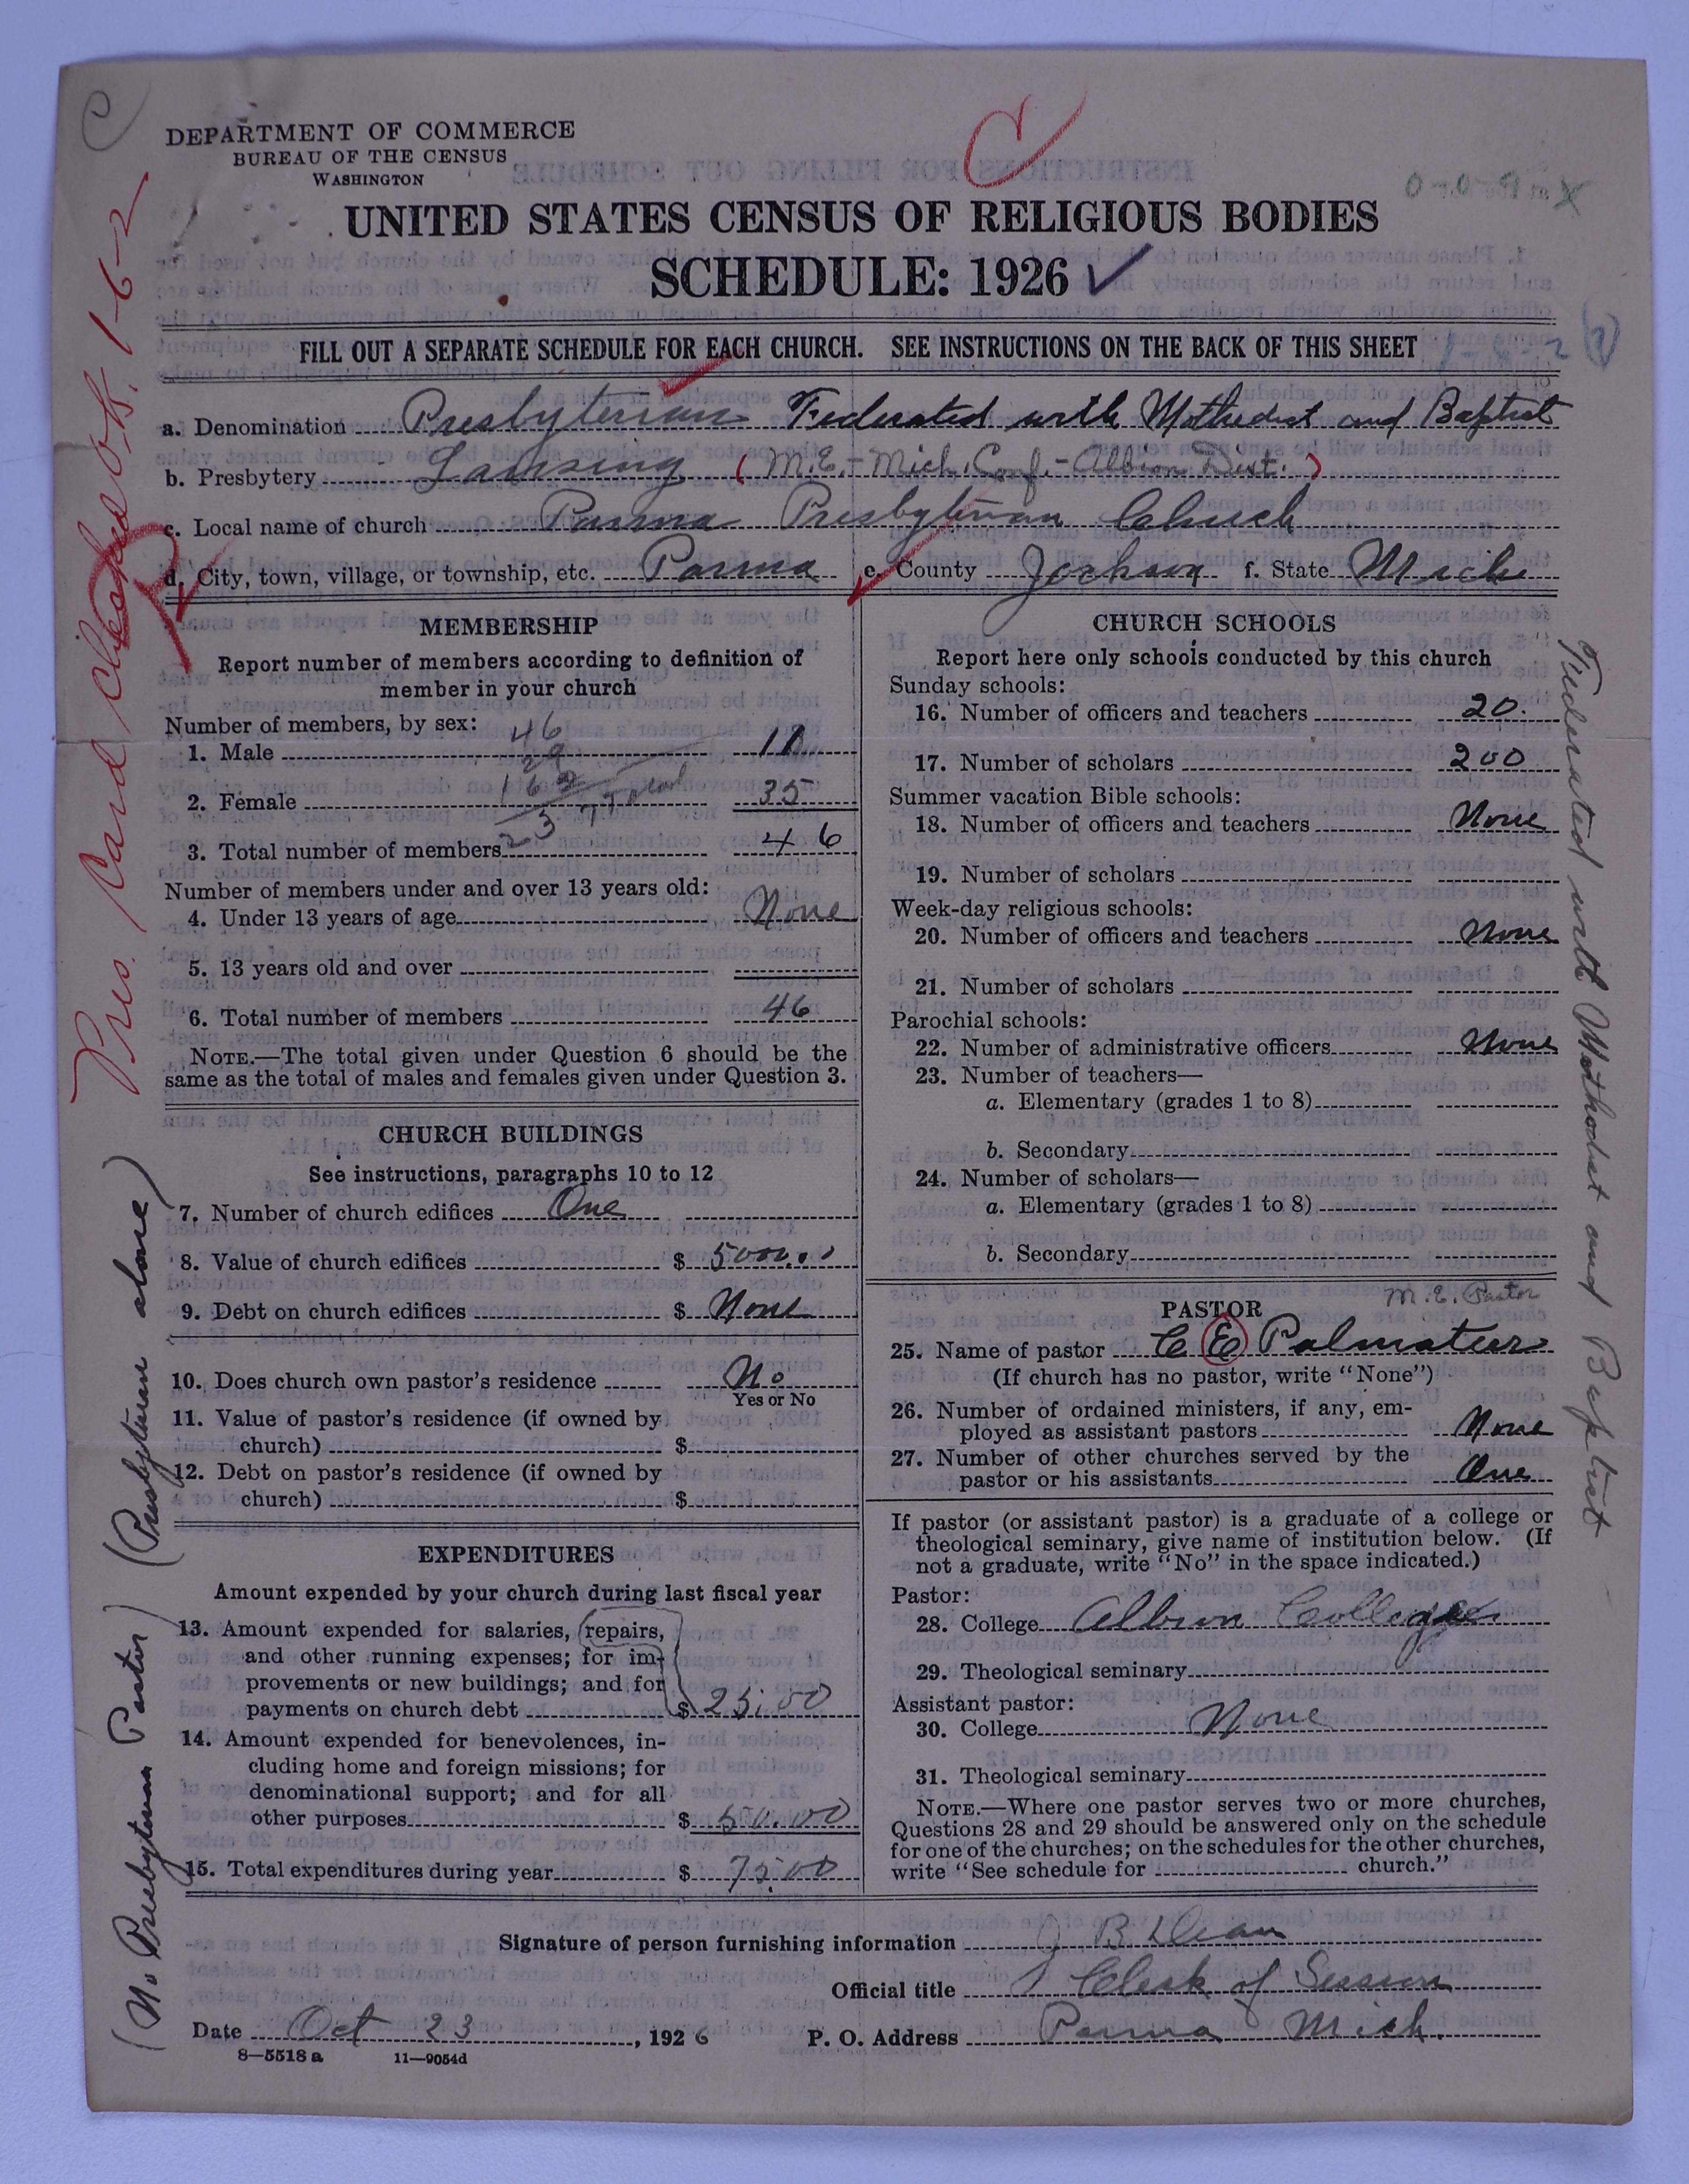 DEPARTMENT OF COMMERCE
BUREAU OF THE CENSUS
WASHINGTON
UNITED STATES CENSUS OF RELIGIOUS BODIES
SCHEDULE: 1926
FILL OUT A SEPARATE SCHEDULE FOR EACH CHURCH. SEE INSTRUCTIONS ON THE BACK OF THIS SHEET
a. Denomination Presbyterian Federated with Methodist and Baptist
b. Presbytery Lansing (M.E.-Mich. Conf.-Albion Dist.)
c. Local name of church Parma Presbyterian Church
d. City, town, village, or township, etc. Parma e. County Jackson f. State Mich
MEMBERSHIP
Report number of members according to definition of
member in your church
Number of members, by sex:
46
1. Male 11
29
162
2. Female 35
3. Total number of members 46
Number of members under and over 13 years old:
4. Under 13 years of age None
5. 13 years old and over
6. Total number of members 46
NOTE.—The total given under Question 6 should be the
same as the total of males and females given under Question 3.
CHURCH BUILDINGS
See instructions, paragraphs 10 to 12
7. Number of church edifices One
8. Value of church edifices $ 5000.00
9. Debt on church edifices $ None
10. Does church own pastor's residence No
Yes or No
11. Value of pastor's residence (if owned by
church) $
12. Debt on pastor's residence (if owned by
church) $
EXPENDITURES
Amount expended by your church during last fiscal year
13. Amount expended for salaries, repairs,
and other running expenses; for im-
provements or new buildings; and for
payments on church debt $ 25.00
14. Amount expended for benevolences, in-
cluding home and foreign missions; for
denominational support; and for all
other purposes $ 50.00
15. Total expenditures during year $ 75.00
CHURCH SCHOOLS
Report here only schools conducted by this church
Sunday schools:
16. Number of officers and teachers 20
17. Number of scholars 200
Summer vacation Bible schools:
18. Number of officers and teachers None
19. Number of scholars
Week-day religious schools:
20. Number of officers and teachers None
21. Number of scholars
Parochial schools:
22. Number of administrative officers None
23. Number of teachers—
a. Elementary (grades 1 to 8)
b. Secondary
24. Number of scholars—
a. Elementary (grades 1 to 8)
b. Secondary
M.E. Pastor
PASTOR
25. Name of pastor C E Palmateer
(If church has no pastor, write "None")
26. Number of ordained ministers, if any, em-
ployed as assistant pastors None
27. Number of other churches served by the
pastor or his assistants One
If pastor (or assistant pastor) is a graduate of a college or
theological seminary, give name of institution below. (If
not a graduate, write "No" in the space indicated.)
Pastor:
28. College Albion College
29. Theological seminary
Assistant pastor:
30. College None
31. Theological seminary
NOTE.—Where one pastor serves two or more churches,
Questions 28 and 29 should be answered only on the schedule
for one of the churches; on the schedules for the other churches,
write "See schedule for church."
Signature of person furnishing information J B Dean
Official title Clerk of Session
Date Oct 23, 1926 P. O. Address Parma Mich.
8—5518 a 11—9054d
Pres. Card checked O.K. 1-6-2
(No Presbyterian Pastor) (Presbyterian alone)
Federated with Methodist and Baptist